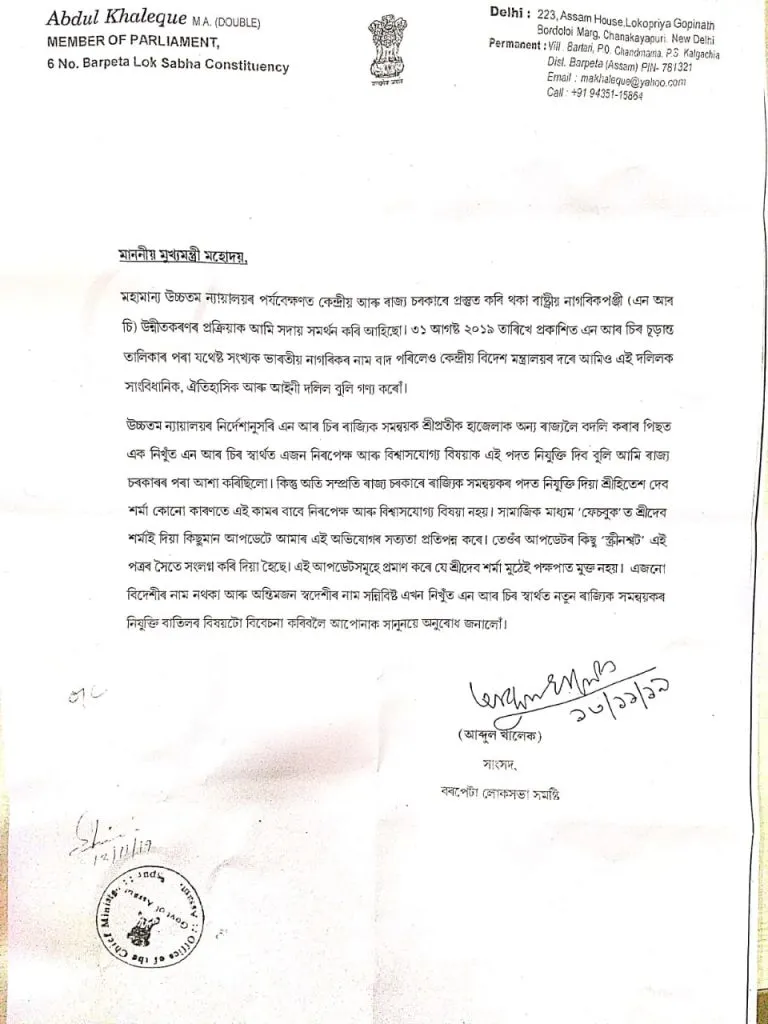 Abdul Khaleque M.A. (DOUBLE)
MEMBER OF PARLIAMENT,
6 No. Barpeta Lok Sabha Constituency
Delhi : 223, Assam House, Lokopriya Gopinath
Bordoloi Marg, Chanakayapuri, New Delhi
Permanent : Vill. Bartari, P.O. Chandmama, P.S. Kalgachia
Dist. Barpeta (Assam) PIN- 781321
Email : makhaleque@yahoo.com
Call : +91 94351-15864
মাননীয় মুখ্যমন্ত্ৰী মহোদয়,
মহামান্য উচ্চতম ন্যায়ালয়ৰ পৰ্যবেক্ষণত কেন্দ্ৰীয় আৰু ৰাজ্য চৰকাৰে প্ৰস্তুত কৰি থকা ৰাষ্ট্ৰীয় নাগৰিকপঞ্জী (এন আৰ
চি) উন্নীতকৰণৰ প্ৰক্ৰিয়াক আমি সদায় সমৰ্থন কৰি আহিছো। ৩১ আগষ্ট ২০১৯ তাৰিখে প্ৰকাশিত এন আৰ চিৰ চূড়ান্ত
তালিকাৰ পৰা যথেষ্ট সংখ্যক ভাৰতীয় নাগৰিকৰ নাম বাদ পৰিলেও কেন্দ্ৰীয় বিদেশ মন্ত্ৰালয়ৰ দৰে আমিও এই দলিলক
সাংবিধানিক, ঐতিহাসিক আৰু আইনী দলিল বুলি গণ্য কৰোঁ।
উচ্চতম ন্যায়ালয়ৰ নিৰ্দেশানুসৰি এন আৰ চিৰ ৰাজ্যিক সমন্বয়ক শ্ৰীপ্ৰতীক হাজেলাক অন্য ৰাজ্যলৈ বদলি কৰাৰ পিছত
এক নিখুঁত এন আৰ চিৰ স্বাৰ্থত এজন নিৰপেক্ষ আৰু বিশ্বাসযোগ্য বিষয়াক এই পদত নিযুক্তি দিব বুলি আমি ৰাজ্য
চৰকাৰৰ পৰা আশা কৰিছিলো। কিন্তু অতি সম্প্ৰতি ৰাজ্য চৰকাৰে ৰাজ্যিক সমন্বয়কৰ পদত নিযুক্তি দিয়া শ্ৰীহিতেশ দেব
শৰ্মা কোনো কাৰণতে এই কামৰ বাবে নিৰপেক্ষ আৰু বিশ্বাসযোগ্য বিষয়া নহয়। সামাজিক মাধ্যম 'ফেচবুক'ত শ্ৰীদেব
শৰ্মাই দিয়া কিছুমান আপডেটে আমাৰ এই অভিযোগৰ সত্যতা প্ৰতিপন্ন কৰে। তেওঁৰ আপডেটৰ কিছু 'স্ক্ৰীনশ্বট' এই
পত্ৰৰ সৈতে সংলগ্ন কৰি দিয়া হৈছে। এই আপডেটসমূহে প্ৰমাণ কৰে যে শ্ৰীদেব শৰ্মা মুঠেই পক্ষপাত মুক্ত নহয়। এজনো
বিদেশীৰ নাম নথকা আৰু অন্তিমজন স্বদেশীৰ নাম সন্নিবিষ্ট এখন নিখুঁত এন আৰ চিৰ স্বাৰ্থত নতুন ৰাজ্যিক সমন্বয়কৰ
নিযুক্তি বাতিলৰ বিষয়টো বিবেচনা কৰিবলৈ আপোনাক সানুনয়ে অনুৰোধ জনালোঁ।
আব্দুল খালেক
১৩/১১/১৯
(আব্দুল খালেক)
সাংসদ,
বৰপেটা লোকসভা সমষ্টি
12/11/19
Office of the Chief Minister, Assam
Govt of Assam